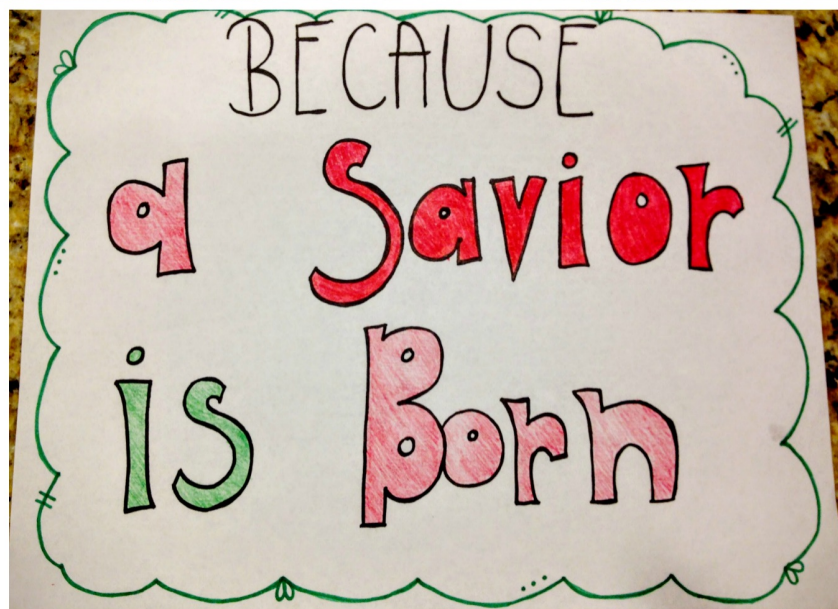 BECAUSE
a Savior
is Born